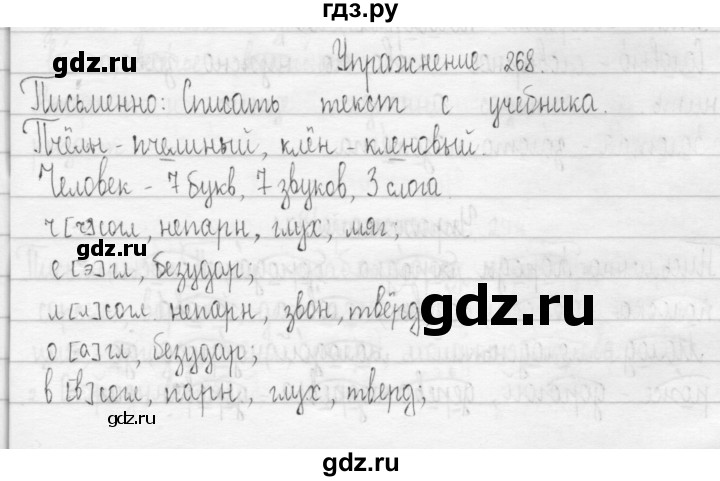 гдз.ру
gdz.ru
Упражнение 268.
Письменно: Списать текст с учебника.
Пчёлы - пчелиный, клён - кленовый.
Человек - 7 букв, 7 звуков, 3 слога.
ч [ч] согл, непарн, глух, мяг;
gdz.ru
е [э] гл, безудар;
gdz.ru
л [л] согл непарн, звон, твёрд
gdz.ru
о [а] гл, безудар;
в [в] согл, парн, глух, тверд;
gdz.ru
gdz.ru